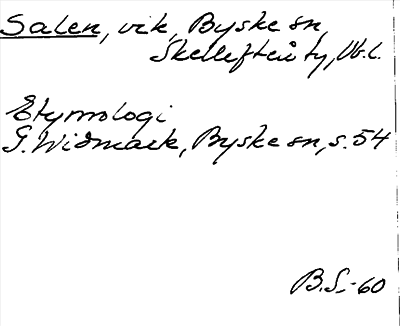 Salen, vik, Byske sn,
Skellefteå ty, Vb.l.
Etymologi
G. Widmark, Byske sn, s. 54
B.S.-60